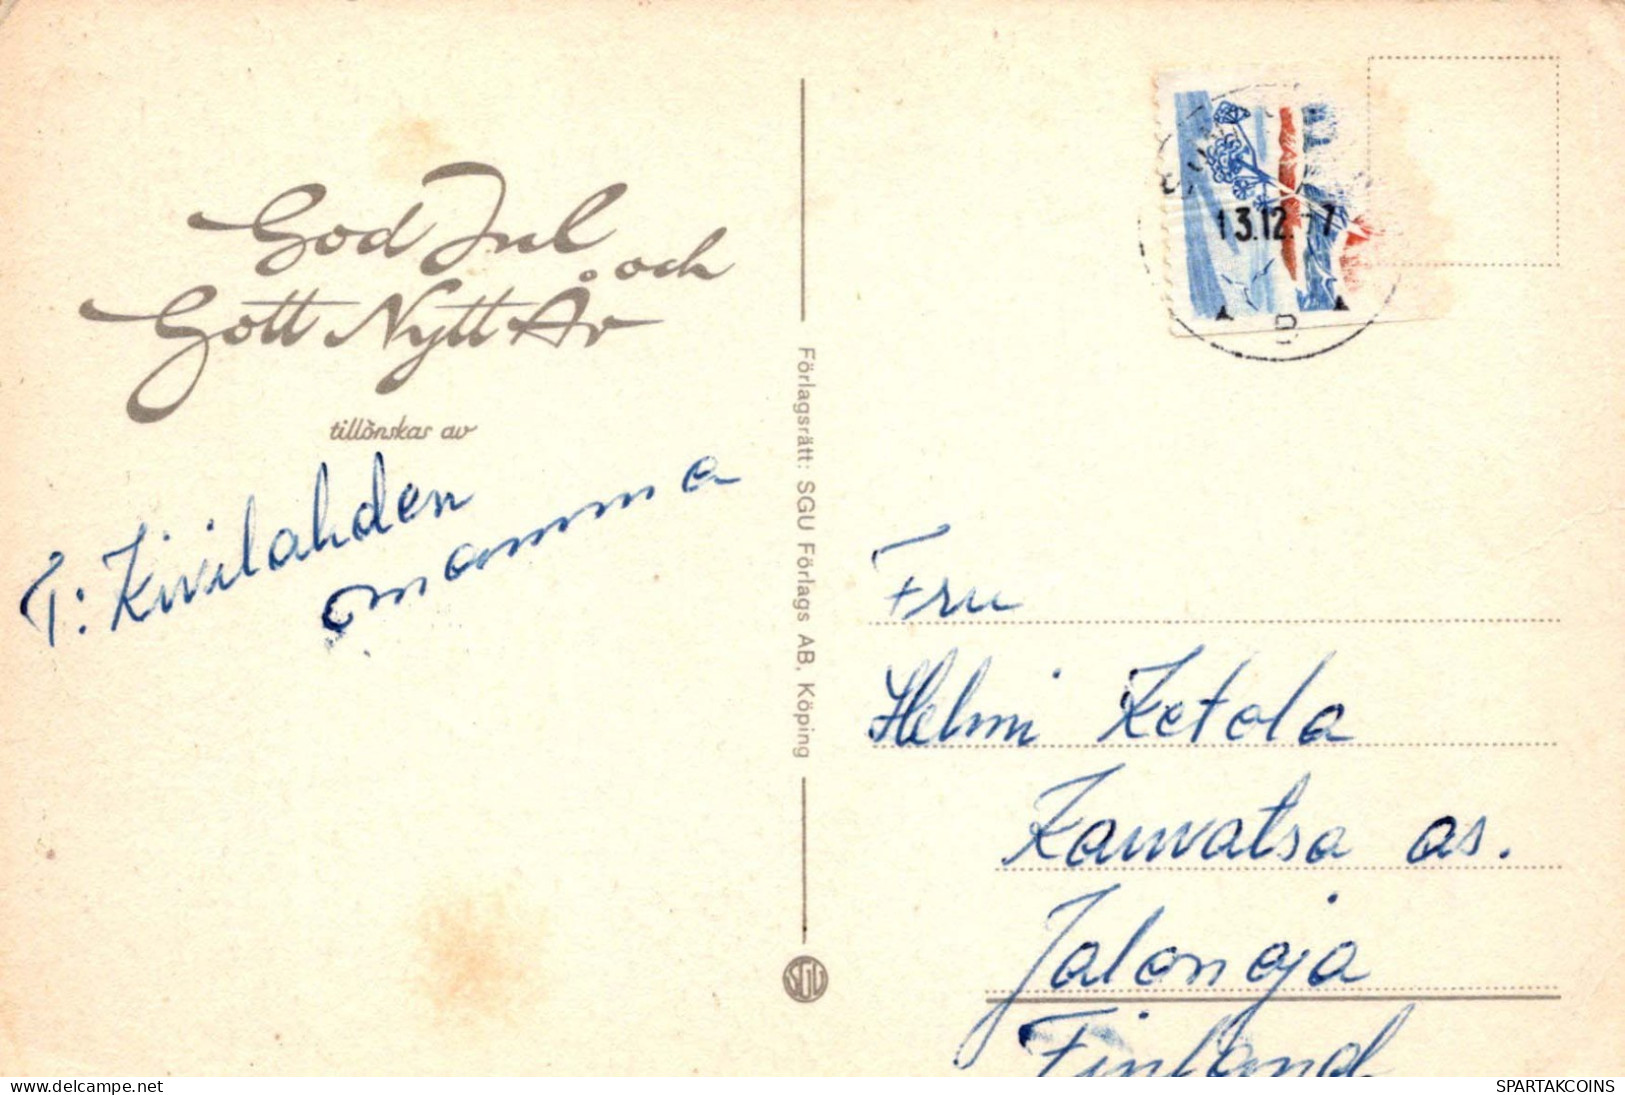 God Jul och
Gott Nytt År
tillönskas av
T: Kivilahden
mamma
Förlagsrätt: SGU Förlags AB, Köping
SGU
13.12.77
B
Fru
Helmi Ketola
Kauvatsa as.
Jalonoja
Finland
delcampe.net
SPARTAKCOINS